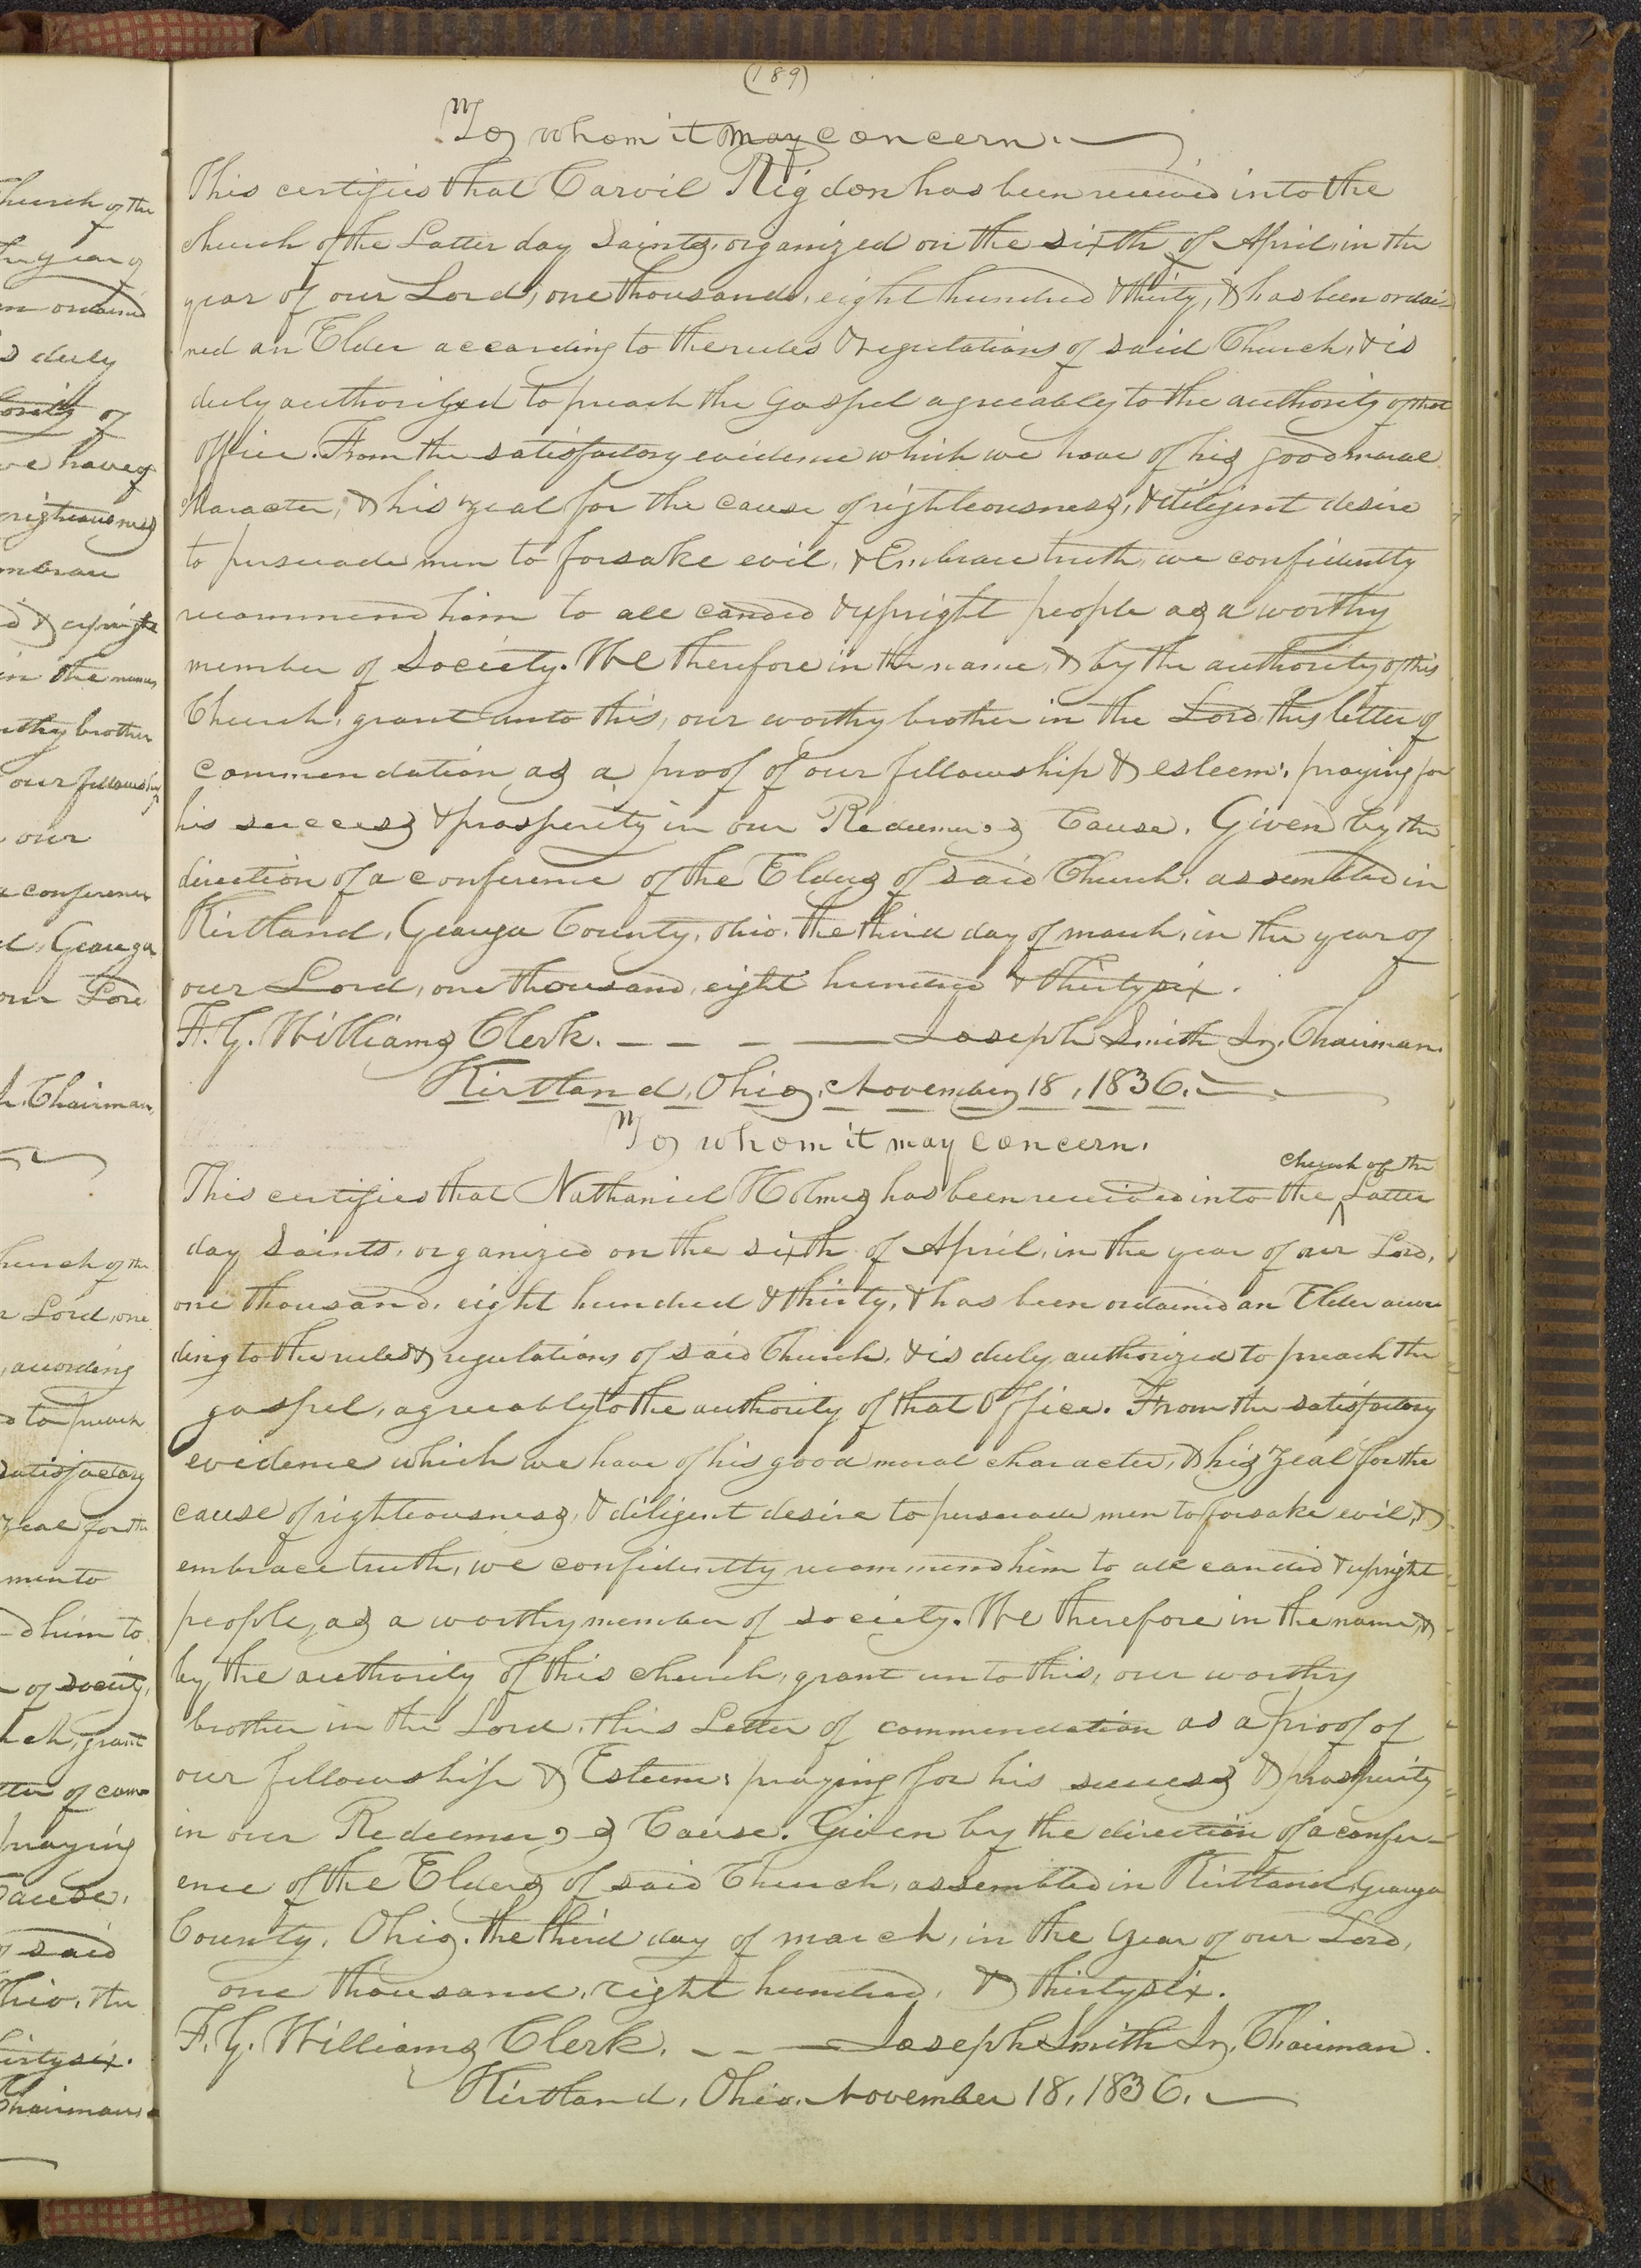 (189)
To whom it may concern.
This certifies that Carvil Rigdon has been received into the
church of the Latter day Saints, organized on the sixth of April, in the
year of our Lord, one thousand, eight hundred & thirty, & has been ordai-
ned an Elder according to the rules & regulations of said Church, & is
duly authorized to preach the gospel agreeably to the authority of that
office. From the satisfactory evidence which we have of his good moral
character, & his zeal for the cause of righteousness, & diligent desire
to persuade men to forsake evil, & Embrace truth, we confidently
recommend him to all candid & upright people as a worthy
member of Society. We therefore in the name, & by the authority of this
Church, grant unto this, our worthy brother in the Lord, this letter of
commendation as a proof of our fellowship & esteem: praying for
his success & prosperity in our Redeemer's Cause. Given by the
direction of a conference of the Elders of said Church, assembled in
Kirtland, Geauga County, Ohio. the third day of march, in the year of
our Lord, one thousand, eight hundred & thirty six.
F. G. Williams Clerk. Joseph Smith Jr. Chairman.
Kirtland, Ohio, November 18, 1836.
To whom it may concern.
church of the
This certifies that Nathaniel Holmes has been received into the Latter
day Saints, organized on the sixth of April, in the year of our Lord,
one thousand, eight hundred & thirty, & has been ordained an Elder accor
ding to the rules & regulations of said Church, & is duly authorized to preach the
gospel, agreeably to the authority of that Office. From the satisfactory
evidence which we have of his good moral character, & his zeal for the
cause of righteousness, & diligent desire to persuade men to forsake evil, &
embrace truth, we confidently recommend him to all candid & upright
people, as a worthy member of society. We therefore in the name, &
by the authority of this church, grant unto this, our worthy
brother in the Lord, this Letter of commendation as a proof of
our fellowship & Esteem: praying for his success & prosperity
in our Redeemer's Cause. Given by the direction of a confer-
ence of the Elders of said Church, assembled in Kirtland, Geauga
County, Ohio. the third day of march, in the Year of our Lord,
one thousand, eight hundred, & thirty six.
F. G. Williams Clerk. Joseph Smith Jr. Chairman.
Kirtland, Ohio. November 18, 1836.